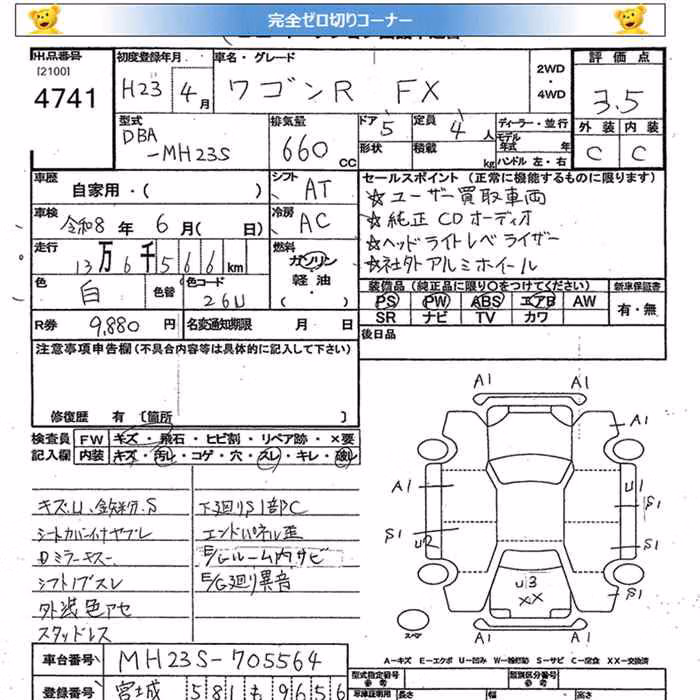 完全ゼロ切りコーナー
出品番号
[2100]
4741
初度登録年月
H23年 4月
車名・グレード
ワゴンR FX
2WD
・
4WD
評価点
3.5
外装 内装
C C
型式
DBA
-MH23S
排気量
660 CC
ドア 5
定員 4 人
形状
積載 kg
ディーラー・並行
モデル年式 年
ハンドル 左・右
車歴
自家用・( )
シフト AT
車検
令和8 年 6 月( 日)
冷房 AC
走行
13万6千566km
燃料
ガソリン
軽油
・( )
色 白
色替
色コード 26U
R券 9,880 円
名変通知期限 月 日
セールスポイント(正常に機能するものに限ります)
☆ユーザー買取車両
☆純正CDオーディオ
☆ヘッドライトレベライザー
☆社外アルミホイール
装備品(純正品に限り○をつけてください)
新車保証書
PS PW ABS エアB AW
有・無
SR ナビ TV カワ
後日品
注意事項申告欄(不具合内容等は具体的に記入して下さい)
修復歴 有 〔箇所 〕
検査員記入欄
FW キズ・飛石・ヒビ割・リペア跡・×要
内装 キズ・汚レ・コゲ・穴・スレ・キレ・破レ
キズ.U.鉄粉.S
シートカバー付ナヤブレ
Dミラーキズ
シフトノブスレ
外装色アセ
スタッドレス
下廻りS1部C
エンドパネル歪
E/Gルーム内サビ
E/G廻り異音
A1
A1
A1
A1
U1
S1
S1
U2
S1
U3
XX
S1
A1
A1
スペア
A-キズ E-エクボ U-凹み W-補修跡 S-サビ C-腐食 XX-交換済
車台番号 MH23S-705564
登録番号 宮城 581 も 9656
型式指定番号
参考
類別区分番号
参考
車庫証明用
長さ
幅
高さ